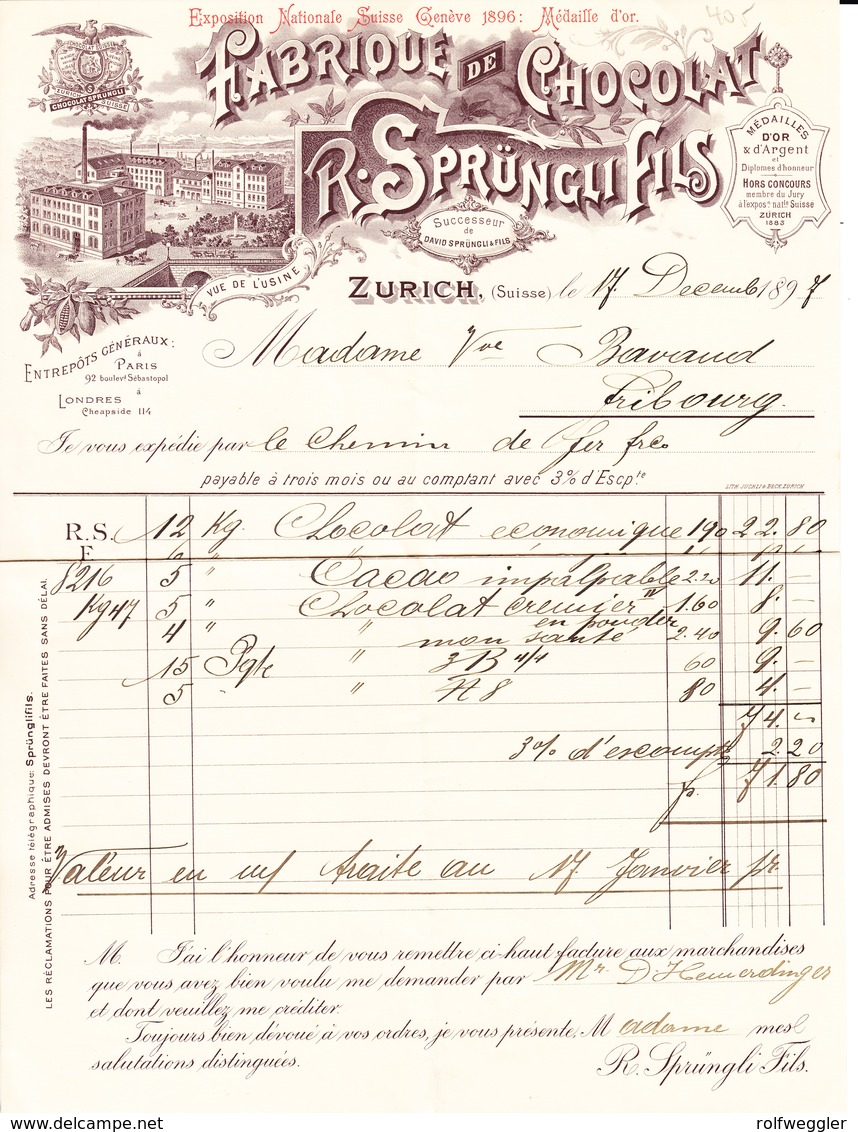 Exposition Nationale Suisse Genève 1896: Médaille d'or.
405
CHOCOLAT SUISSE
ZURICH SUISSE
CHOCOLAT SPRÜNGLI
FABRIQUE DE CHOCOLAT
R. SPRÜNGLI FILS
Successeur
de
DAVID SPRÜNGLI & FILS
MÉDAILLES
D'OR
& d'Argent
et
Diplomes d'honneur
HORS CONCOURS
membre du Jury
à l'exposn natle Suisse
ZÜRICH
1883
VUE DE L'USINE
ZURICH, (Suisse) le 17. Decemb 1897
ENTREPÔTS GÉNÉRAUX:
à
PARIS
92 boulevt Sébastopol
à
LONDRES
Cheapside 114
Madame Vve Bavaud
Fribourg.
Je vous expédie par le Chemin de fer frco
payable à trois mois ou au comptant avec 3% d'Escpte
LITH. JUCHLI & BECK, ZURICH
R.S. 12 Kg. Chocolat economique 190 22.80
F
8216 5 " Cacao impalpable 2.20 11. –
Kg 47 5 " Chocolat cremier 1.60 8. –
en pouder
4 " " mon santé 2.40 9.60
15 Pqte " 3 B 4/4 60 9. –
5 " " N 8 80 4. –
74. –
3% d'escompte 2.20
fr. 71.80
Valeur en m/ traite au 17. Janvier pr.
Adresse télégraphique: Sprünglifils.
LES RÉCLAMATIONS POUR ÊTRE ADMISES DEVRONT ÊTRE FAITES SANS DÉLAI.
M. J'ai l'honneur de vous remettre ci-haut facture aux marchandises
que vous avez bien voulu me demander par Mr. D. Hemerdinger
et dont veuillez me créditer.
Toujours bien dévoué à vos ordres, je vous présente, Madame mes
salutations distinguées.
R. Sprüngli Fils.
rolfweggler